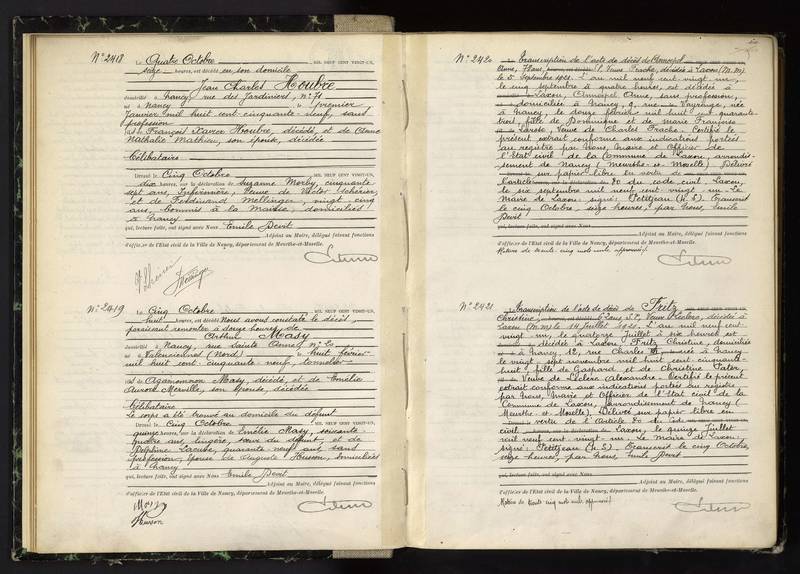 N° 2418
Le Quatre Octobre MIL NEUF CENT VINGT-UN,
seize heures, est décédé en son domicile
Jean Charles Houbre
domicilié à Nancy, rue des Jardiniers, N° 71
né à Nancy, le premier
Janvier mil huit cent cinquante neuf, sans
profession
fils de François Houbre, décédé, et de Anne
Nathalie Mathieu, son épouse, décédée
Célibataire
Dressé le Cinq Octobre MIL NEUF CENT VINGT-UN,
dix heures, sur la déclaration de Suzanne Morby, cinquante
sept ans, Infirmière, Veuve de Victor
et de Ferdinand Mellinger, vingt cinq
ans, commis à la Mairie, domiciliés
à Nancy
qui, lecture faite, ont signé avec Nous Emile Devit
Adjoint au Maire, délégué faisant fonctions
d'officier de l'Etat civil de la Ville de Nancy, département de Meurthe-et-Moselle.
N° 2419
Le Cinq Octobre MIL NEUF CENT VINGT-UN,
huit heures, est décédé Nous avons constaté le décès,
paraissant remonter à douze heures, de
Arthur Masy
domicilié à Nancy, rue Sainte Anne, N° 20
né à Valenciennes (Nord) le huit février
mil huit cent cinquante neuf, tonnelier
fils de Agamemnon Masy, décédé, et de Emélie
Aurore Merville, son épouse, décédée
Célibataire
Le corps a été trouvé au domicile du défunt
Dressé le Cinq Octobre MIL NEUF CENT VINGT-UN,
quinze heures, sur la déclaration de Emélie Masy, soixante
quatre ans, lingère, sœur du défunt, et de
Delphine Lacombe, quarante neuf ans, sans
profession, épouse de Auguste Husson, domiciliés
à Nancy
qui, lecture faite, ont signé avec Nous Emile Devit
Adjoint au Maire, délégué faisant fonctions
d'officier de l'Etat civil de la Ville de Nancy, département de Meurthe-et-Moselle.
Masy
Husson
N° 2420
Transcription de l'acte de décès de Connopel
Anne, 73 ans, Veuve Frache, décédée à Laxou (M. M.)
le 5 Septembre 1921. L'an mil neuf cent vingt un,
le cinq septembre à quatre heures, est décédée à
Laxou, Connopel Anne, sans profession,
domiciliée à Nancy, 9, rue de Vayringe, née
à Nancy, le douze février mil huit cent quarante-
huit, fille de Dominique et de Marie Françoise
Larose, Veuve de Charles Frache. Certifié le
présent extrait conforme aux indications portées
au registre par Nous, Maire et Officier de
l'Etat civil de la Commune de Laxou, arrondis-
sement de Nancy (Meurthe-et-Moselle). Délivré
sur papier libre en vertu de
l'article 80 du code civil. Laxou,
le six septembre mil neuf cent vingt un. Le
Maire de Laxou: signé: Petitjean (L. S.). Transcrit
le cinq Octobre, seize heures, par Nous, Emile
Devit
qui, lecture faite, ont signé avec Nous
Adjoint au Maire, délégué faisant fonctions
d'officier de l'Etat civil de la Ville de Nancy, département de Meurthe-et-Moselle.
Rature de trente cinq mots nuls approuvés.
N° 2421
Transcription de l'acte de décès de Fritz
Christine, 62 ans, Veuve Leclerc, décédée à
Laxou (M. M.) le 14 Juillet 1921. L'an mil neuf cent
vingt un, le quatorze Juillet à six heures est
décédée à Laxou, Fritz Christine, domiciliée
à Nancy, 12, rue Charles III, née à Nancy
le vingt-sept novembre mil huit cent cinquante-
huit, fille de Gaspard et de Christine Pater,
Veuve de Leclerc Alexandre. Certifié le présent
extrait conforme aux indications portées au registre
par Nous, Maire et Officier de l'Etat civil de la
Commune de Laxou, arrondissement de Nancy (
Meurthe et Moselle). Délivré sur papier libre en
vertu de l'Article 80 du code
civil. Laxou, le quinze Juillet
mil neuf cent vingt-un. Le Maire de Laxou:
signé: Petitjean (L. S.). Transcrit le cinq Octobre,
seize heures, par Nous, Emile Devit
qui, lecture faite, ont signé avec Nous
Adjoint au Maire, délégué faisant fonctions
d'officier de l'Etat civil de la Ville de Nancy, département de Meurthe-et-Moselle.
Rature de trente cinq mots nuls approuvés.